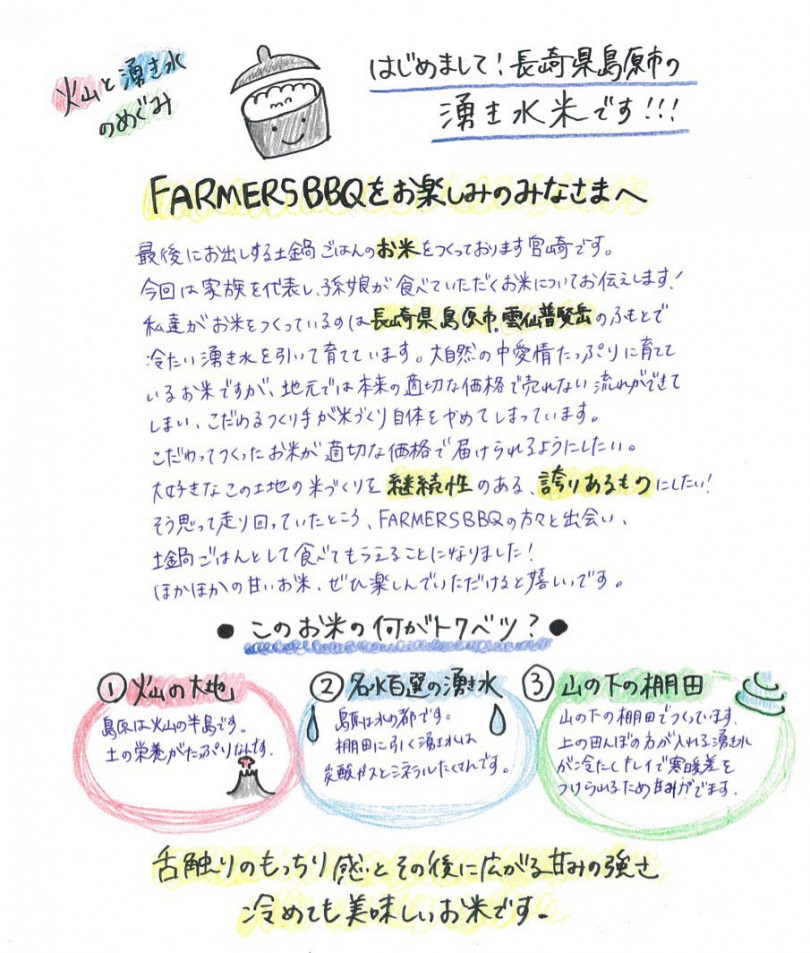 火山と湧き水
のめぐみ
はじめまして！長崎県島原市の
湧き水米です!!!
FARMERSBBQをお楽しみのみなさまへ
最後にお出しする土鍋ごはんのお米をつくっております宮崎です。
今回は家族を代表し、孫娘が食べていただくお米についてお伝えします！
私達がお米をつくっているのは長崎県島原市.雲仙普賢岳のふもとで
冷たい湧き水を引いて育てています。大自然の中愛情たっぷりに育てて
いるお米ですが、地元では本来の適切な価格で売れない流れができて
しまい、こだわるつくり手が米づくり自体をやめてしまっています。
こだわってつくったお米が適切な価格で届けられるようにしたい。
大好きなこの土地の米づくりを継続性のある、誇りあるものにしたい！
そう思って走り回っていたところ、FARMERSBBQの方々と出会い、
土鍋ごはんとして食べてもらえることになりました！
ほかほかの甘いお米、ぜひ楽しんでいただけると嬉しいです。
●このお米の何がトクベツ？●
①火山の大地
島原は火山の半島です。
土の栄養がたっぷりなんです.
②名水百選の湧き水
島原は水の都です。
棚田に引く湧き水は
炭酸ガスとミネラルたくさんです。
③山の下の棚田
山の下の棚田でつくっています.
上の田んぼの方が入れる湧き水
が冷たくキレイで寒暖差を
つけられるため甘みがでます.
舌触りのもっちり感とその後に広がる甘みの強さ
冷めても美味しいお米です.